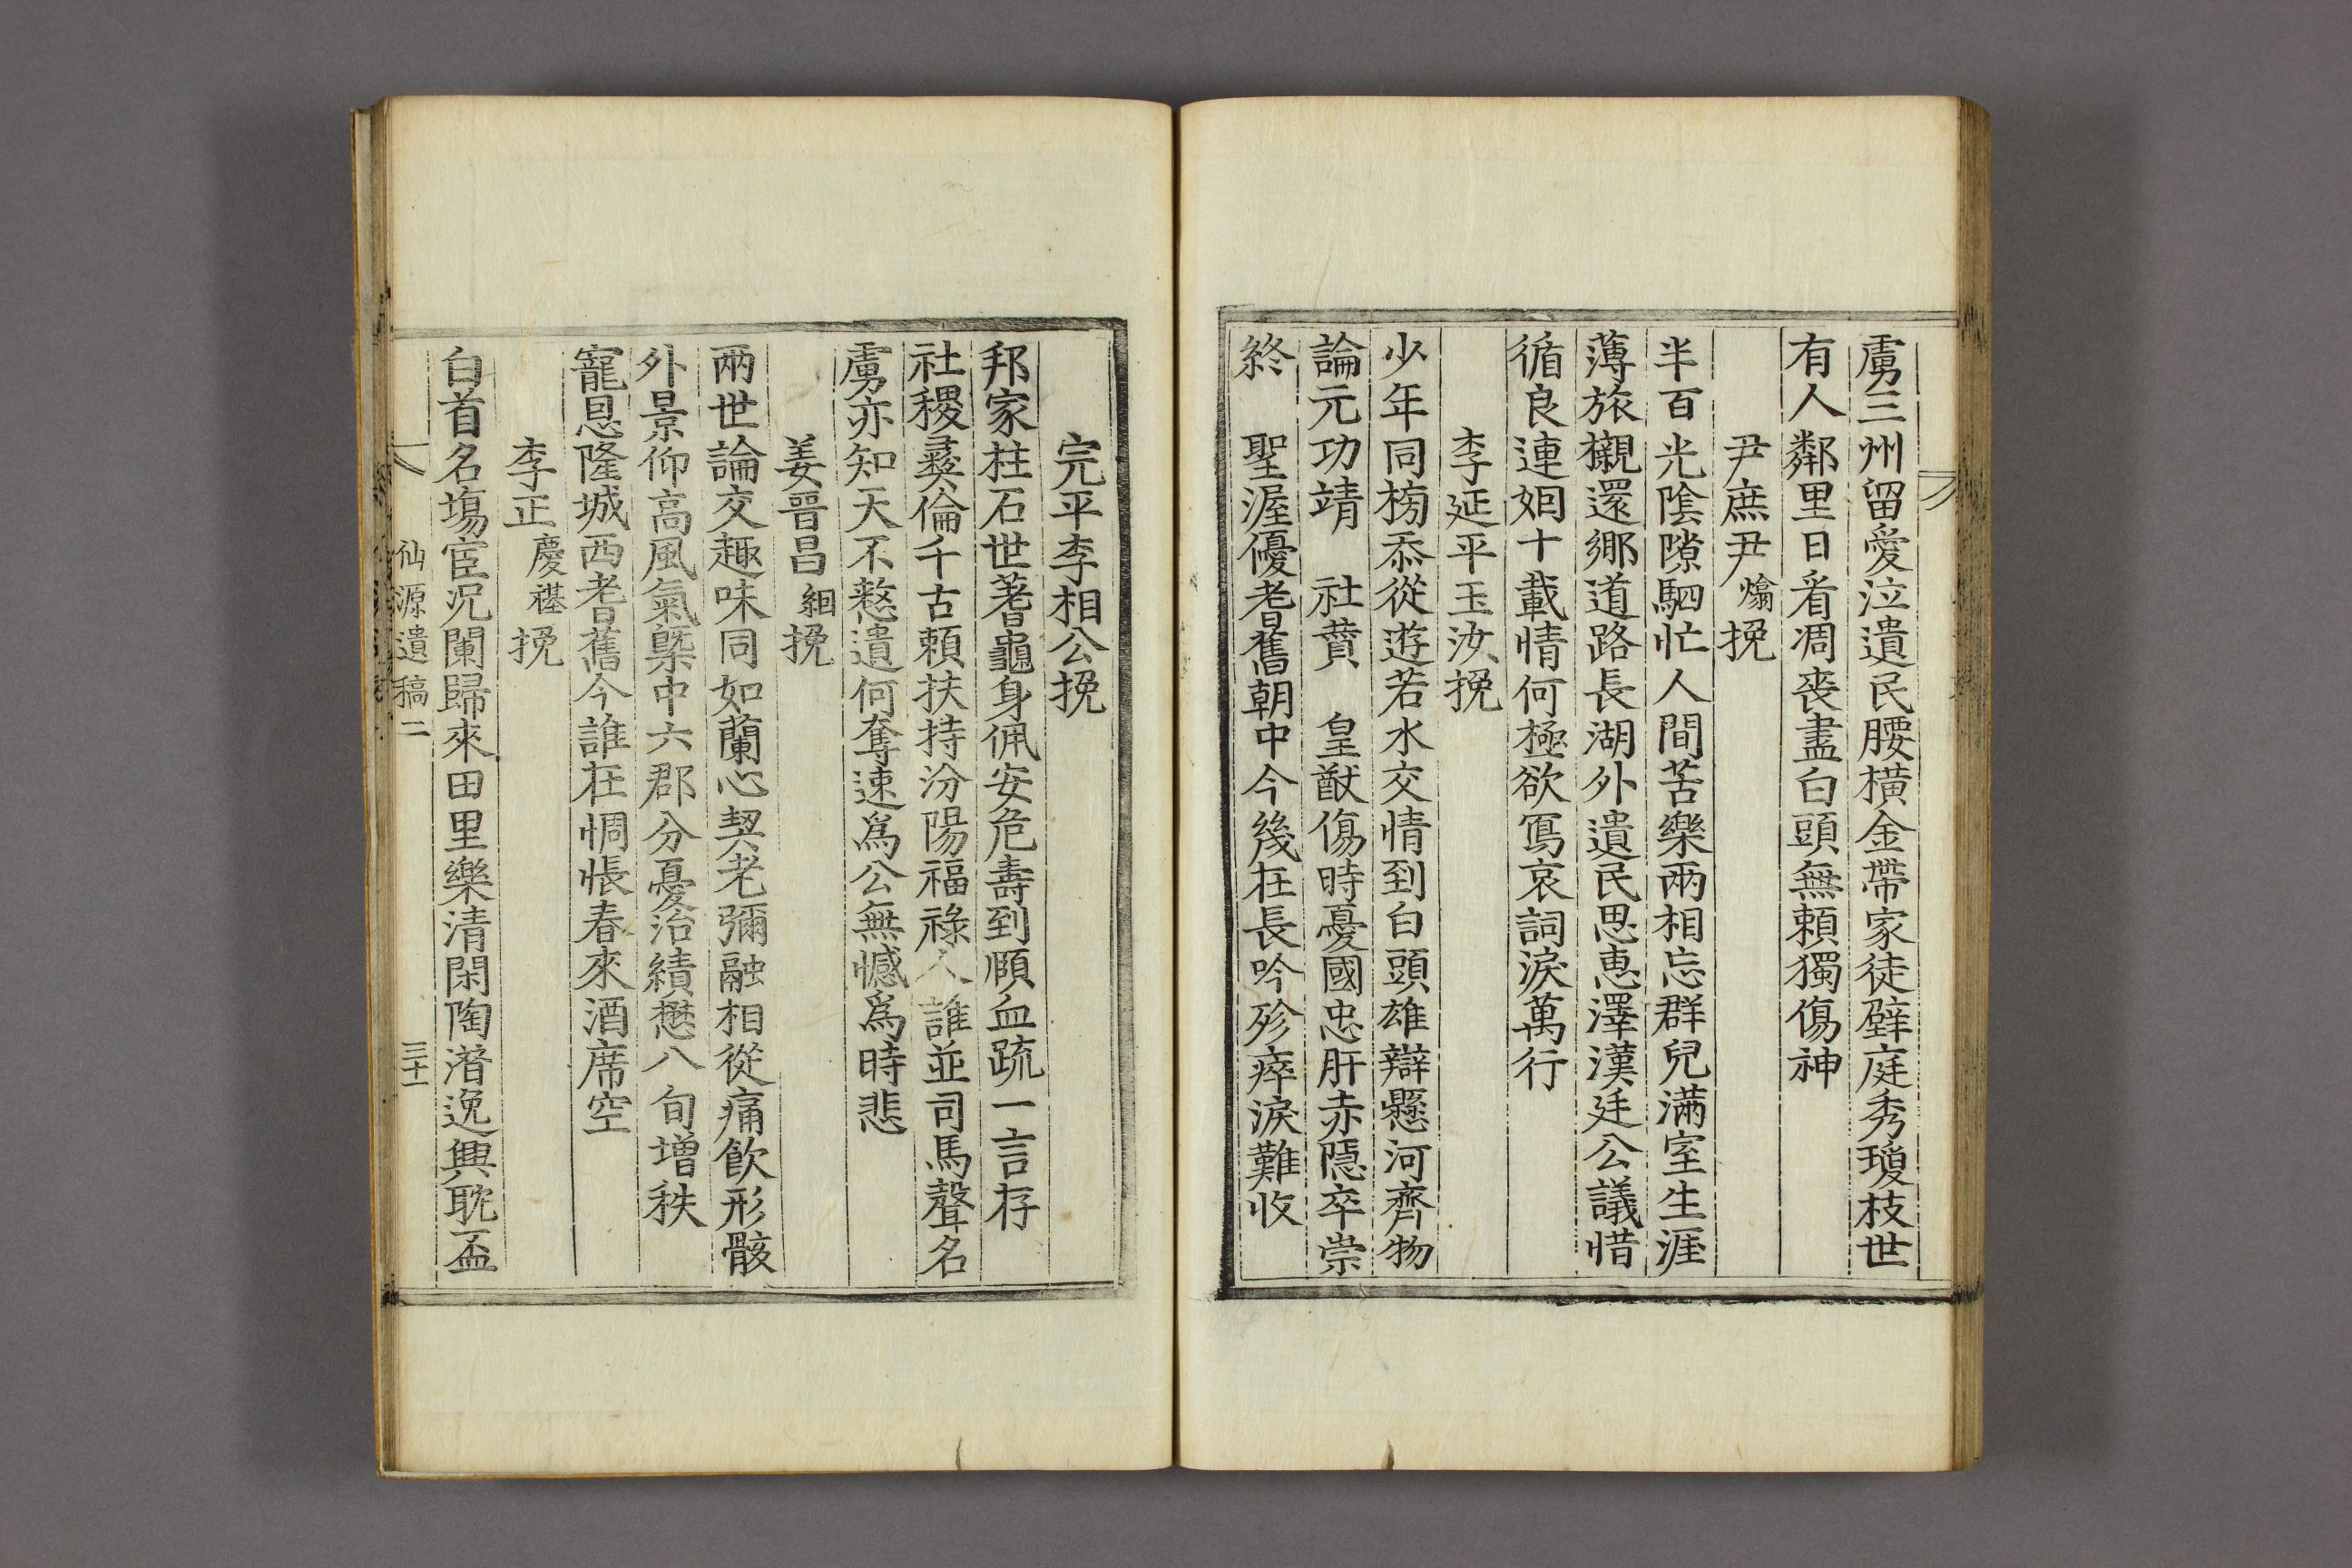 虜三州留愛泣遺民腰橫金帶家徒壁庭秀瓊枝世
有人鄰里日看凋喪盡白頭無賴獨傷神
尹庶尹㷍挽
半百光陰隙駟忙人間苦樂兩相忘群兒滿室生涯
薄旅櫬還鄉道路長湖外遺民思惠澤漢廷公議惜
循良連姻十載情何極欲寫哀詞淚萬行
李延平玉汝挽
少年同榜忝從遊若水交情到白頭雄辯懸河齊物
論元功靖 社贊 皇猷傷時憂國忠肝赤隱卒崇
終 聖渥優耆舊朝中今幾在長吟殄瘁淚難收
完平李相公挽
邦家柱石世蓍龜身佩安危壽到頤血疏一言存
社稷彛倫千古賴扶持汾陽福祿人誰並司馬聲名
虜亦知天不憗遺何奪速爲公無憾爲時悲
姜晉昌絪挽
兩世論交趣味同如蘭心契老彌融相從痛飮形骸
外景仰高風氣槩中六郡分憂治績懋八旬增秩
寵恩隆城西耆舊今誰在惆悵春來酒席空
李正慶禥挽
白首名場宦況闌歸來田里樂淸閑陶潛逸興耽盃
仙源遺稿二 三十一